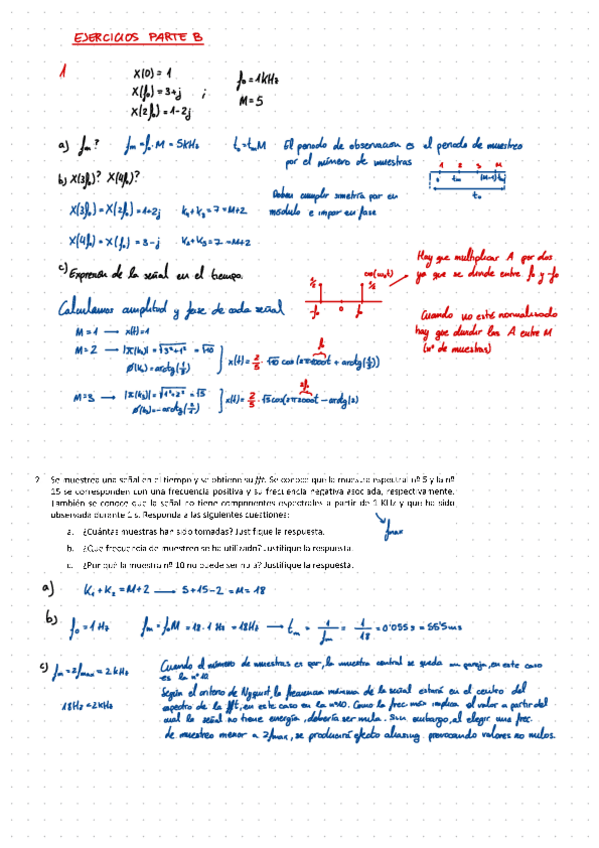 EJERCICIOS PARTE B
1
X(0) = 1
X(f₀) = 3+j ;
X(2f₀) = 1-2j
f₀ = 1kHz
M = 5
a) fm? fm = f₀·M = 5kHz t₀ = tm M El periodo de observación es el periodo de muestreo
por el número de muestras
1 2 3 M
0 tm (M-1)tm
t₀
b) X(3f₀)? X(4f₀)?
Deben cumplir simetría par en
módulo e impar en fase
X(3f₀) = X(2f₀) = 1+2j K₁+K₂ = 7 = M+2
X(4f₀) = X(f₀) = 3-j K₁+K₂ = 7 = M+2
c) Expresión de la señal en el tiempo.
cos(ω₀t)
-f₀ 0 f₀
Hay que multiplicar A por dos
ya que se divide entre f₀ y -f₀
Cuando no esté normalizado
hay que dividir las A entre M
(nº de muestras)
Calculamos amplitud y fase de cada señal
M = 1 → x(t) = 1
M = 2 → |X(k₀)| = √3²+1² = √10
Ø(k₀) = arctg(1/3)
x(t) = 2/5 · √10 cos(2π1000t + arctg(1/3))
f₀
M = 3 → |X(k₀)| = √1²+2² = √5
Ø(k₀) = -arctg(2/1)
x(t) = 2/5 · √5 cos(2π2000t - arctg(2))
2f₀
2 Se muestrea una señal en el tiempo y se obtiene su fft. Se conoce que la muestra espectral nº 5 y la nº
15 se corresponden con una frecuencia positiva y su frecuencia negativa asociada, respectivamente.
También se conoce que la señal no tiene componentes espectrales a partir de 1 KHz y que ha sido
observada durante 1 s. Responda a las siguientes cuestiones:
fmax
a. ¿Cuántas muestras han sido tomadas? Justifique la respuesta.
b. ¿Qué frecuencia de muestreo se ha utilizado? Justifique la respuesta.
c. ¿Por qué la muestra nº 10 no puede ser nula? Justifique la respuesta.
a) K₁+K₂ = M+2 → 5+15-2 = M = 18
b) f₀ = 1Hz fm = f₀M = 18·1Hz = 18Hz → tm = 1/fm = 1/18 = 0'055s = 55'5ms
c) fm = 2fmax = 2kHz
18Hz < 2kHz
Cuando el número de muestras es par, la muestra central se queda sin pareja, en este caso
es la nº 10
Según el criterio de Nyquist, la frecuencia máxima de la señal estará en el centro del
espectro de la fft, en este caso en la nº10. Como la frec máx implica el valor a partir del
cual la señal no tiene energía, debería ser nula. Sin embargo, al elegir una frec.
de muestreo menor a 2fmax, se producirá efecto aliasing provocando valores no nulos.